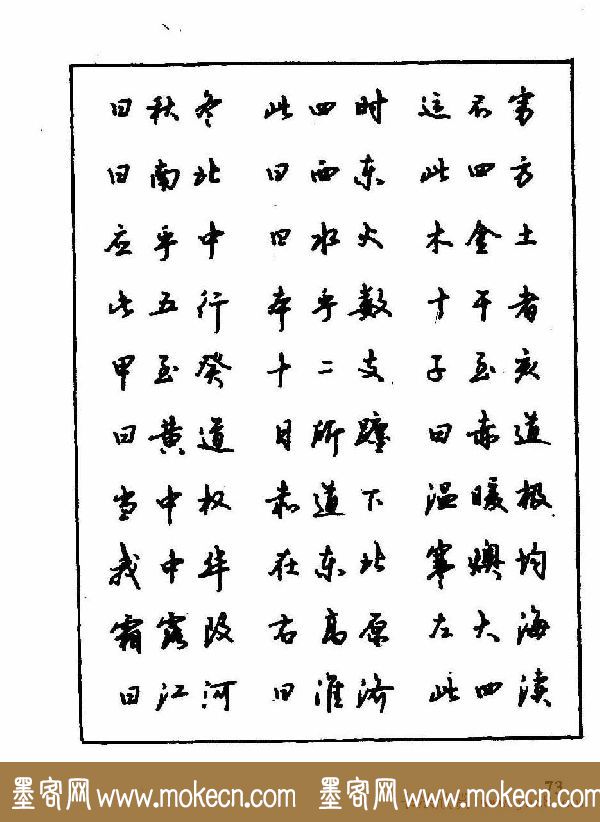 曰秋冬 此四时 运不穷
曰南北 曰西东 此四方
应乎中 曰水火 木金土
此五行 本乎数 十干者
甲至癸 十二支 子至亥
曰黄道 日所躔 曰赤道
当中权 赤道下 温暖极
我中华 在东北 寒燠均
霜露改 右高原 左大海
曰江河 曰淮济 此四渎
73
墨客网 www.mokecn.com 墨客网 www.mokecn.com